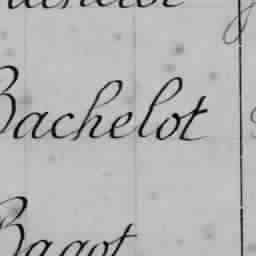 Bachelot
Bagot